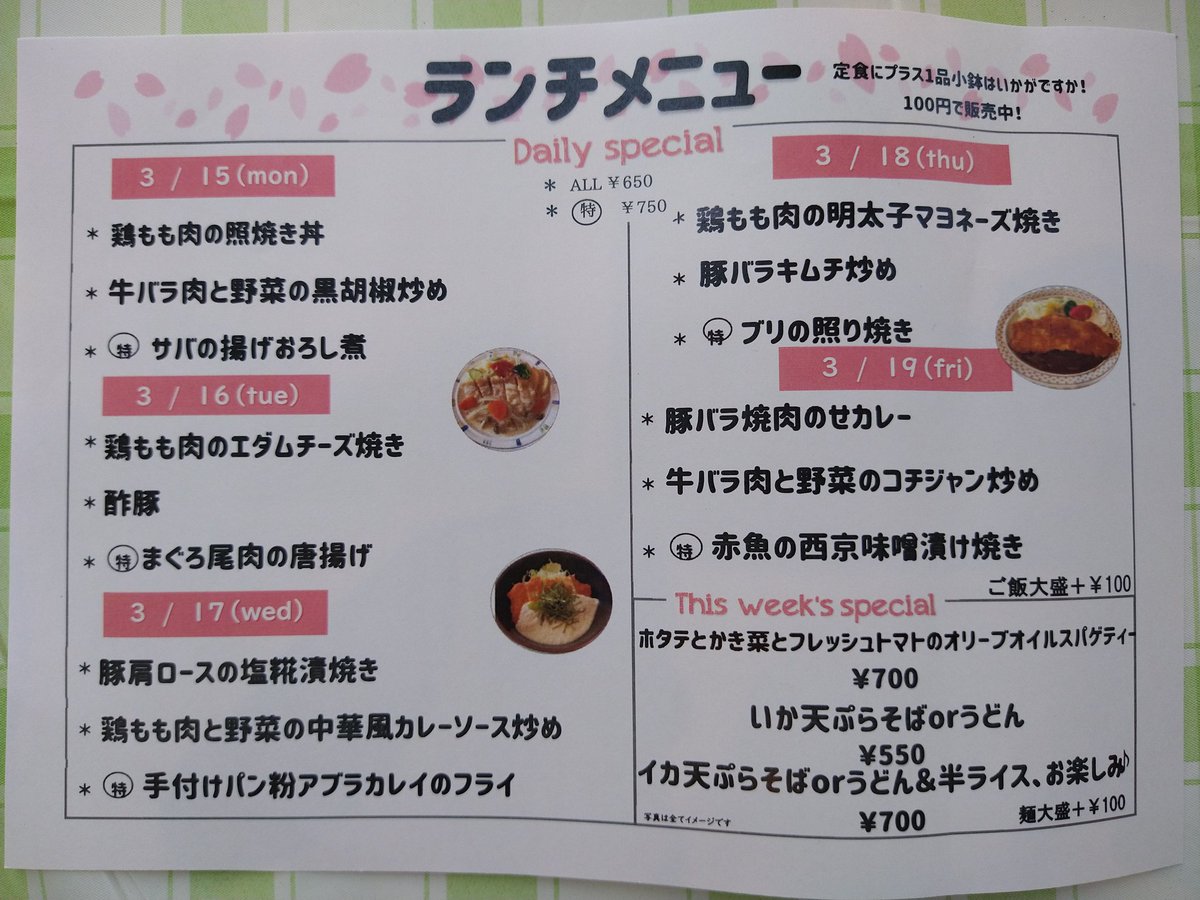 ランチメニュー
定食にプラス1品小鉢はいかがですか!
100円で販売中!
Daily special
* ALL ¥650
* 特 ¥750
3 / 15(mon)
* 鶏もも肉の照焼き丼
* 牛バラ肉と野菜の黒胡椒炒め
* 特 サバの揚げおろし煮
3 / 16(tue)
* 鶏もも肉のエダムチーズ焼き
* 酢豚
* 特 まぐろ尾肉の唐揚げ
3 / 17(wed)
* 豚肩ロースの塩糀漬焼き
* 鶏もも肉と野菜の中華風カレーソース炒め
* 特 手付けパン粉アブラカレイのフライ
3 / 18(thu)
* 鶏もも肉の明太子マヨネーズ焼き
* 豚バラキムチ炒め
* 特 ブリの照り焼き
3 / 19(fri)
* 豚バラ焼肉のせカレー
* 牛バラ肉と野菜のコチジャン炒め
* 特 赤魚の西京味噌漬け焼き
ご飯大盛+¥100
This week's special
ホタテとかき菜とフレッシュトマトのオリーブオイルスパゲティー
¥700
いか天ぷらそばorうどん
¥550
イカ天ぷらそばorうどん&半ライス、お楽しみ♪
¥700
麺大盛+¥100
写真は全てイメージです